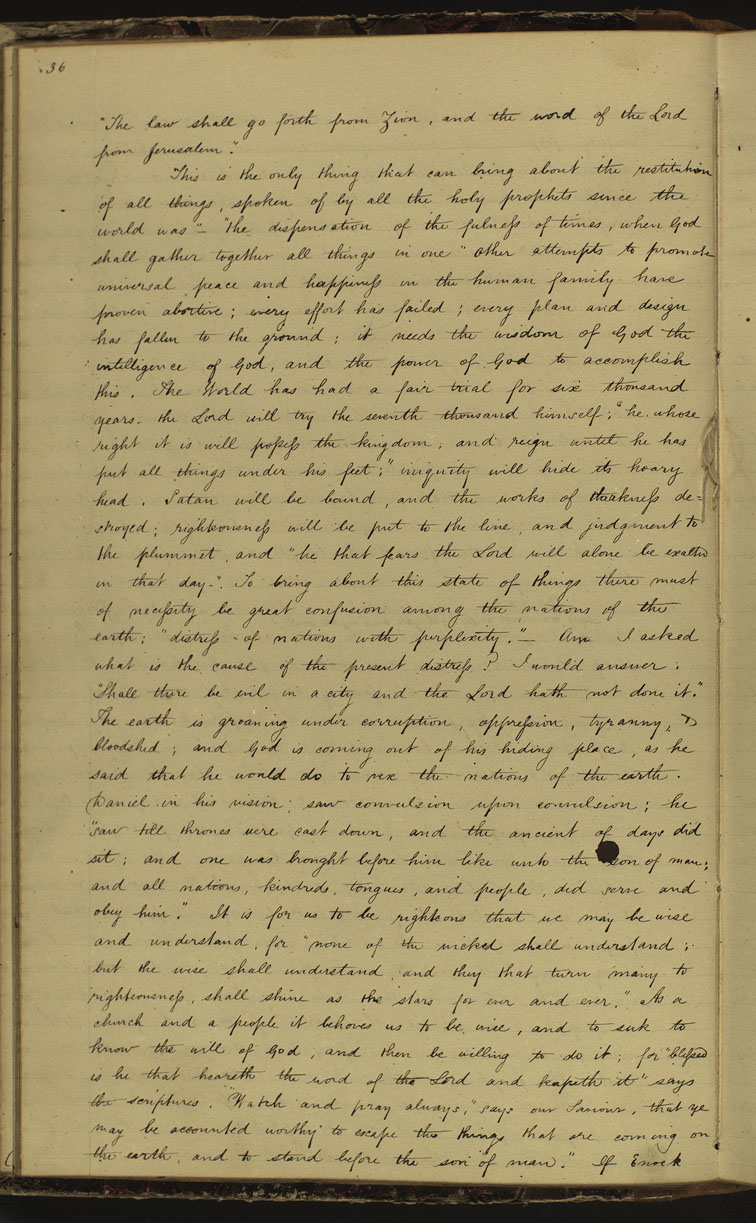 36
"The law shall go forth from Zion, and the word of the Lord
from Jerusalem".
This is the only thing that can bring about the restitution
"of all things, spoken of by all the holy prophets since the
world was" — "the dispensation of the fulness of times, when God
shall gather together all things in one" other attempts to promote
universal peace and happiness in the human family have
proven abortive; every effort has failed; every plan and design
has fallen to the ground; it needs the wisdom of God the
intelligence of God, and the power of God to accomplish
this. The World has had a fair trial for six thousand
years. the Lord will try the seventh thousand himself; "he whose
right it is will possess the kingdom, and reign until he has
put all things under his feet;" iniquity will hide its hoary
head. Satan will be bound, and the works of darkness de=
stroyed; righteousness will be put to the line, and judgment to
the plummet, and "he that fears the Lord will alone be exalted
in that day-". To bring about this state of things there must
of necessity be great confusion among the nations of the
earth; "distress of nations with perplexity." — Am I asked
what is the cause of the present distress? I would answer.
"Shall there be evil in a city and the Lord hath not done it."
The earth is groaning under corruption, oppression, tyranny, &
bloodshed; and God is coming out of his hiding place, as he
said that he would do to vex the nations of the earth.
Daniel in his vision, saw convulsion upon convulsion; he
"saw till thrones were cast down, and the ancient of days did
sit; and one was brought before him like unto the son of man;
and all nations, kindreds, tongues, and people, did serve and
obey him." It is for us to be righteous that we may be wise
and understand, for "none of the wicked shall understand;
but the wise shall understand, and they that turn many to
righteousness, shall shine as the stars for ever and ever." As a
church and a people it behoves us to be wise, and to seek to
know the will of God, and then be willing to do it; for "blessed
is he that heareth the word of the Lord and keapeth it" says
the scriptures. "Watch and pray always," says our Saviour, that ye
may be accounted worthy to escape the things that are coming on
the earth, and to stand before the son of man." If Enock